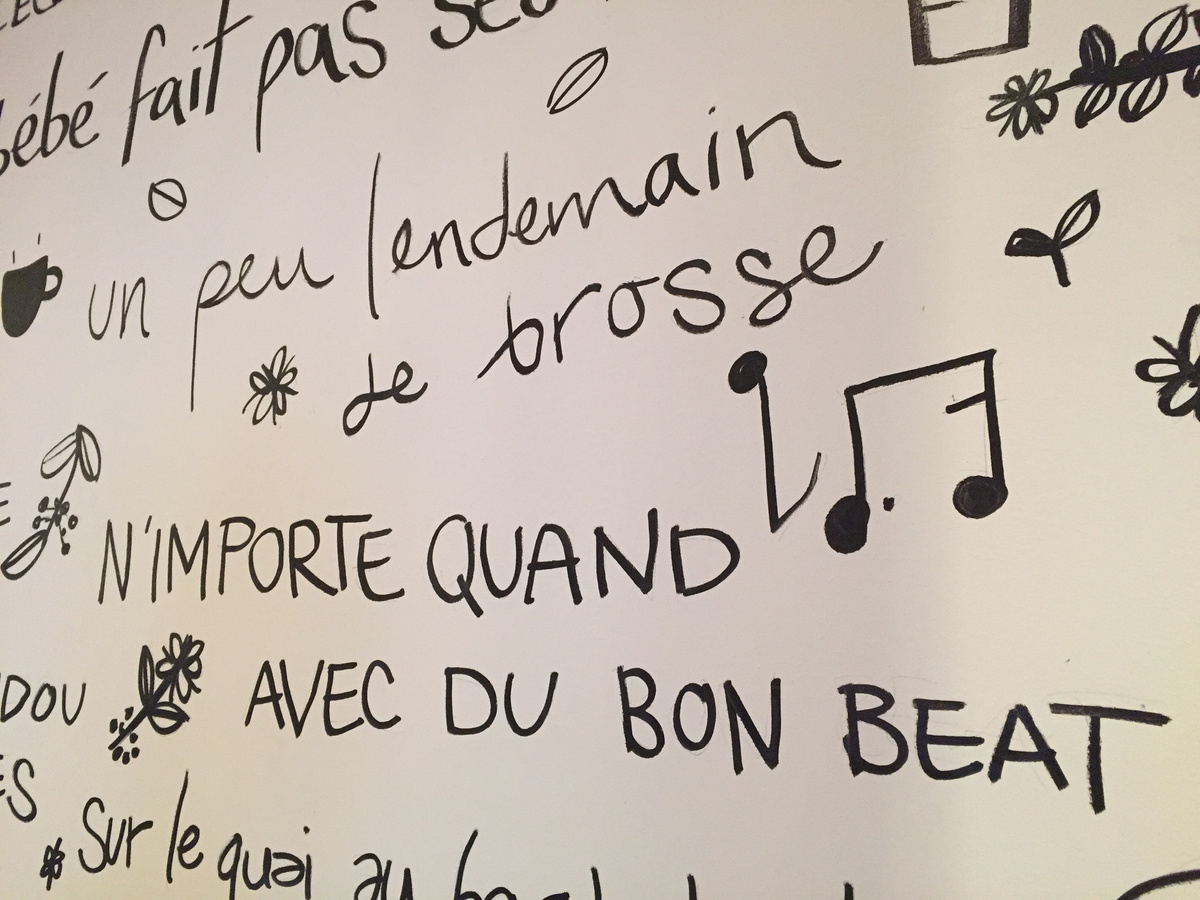 bébé fait pas
un peu lendemain
de brosse
N'IMPORTE QUAND
DOU
AVEC DU BON BEAT
ES
Sur le quai au